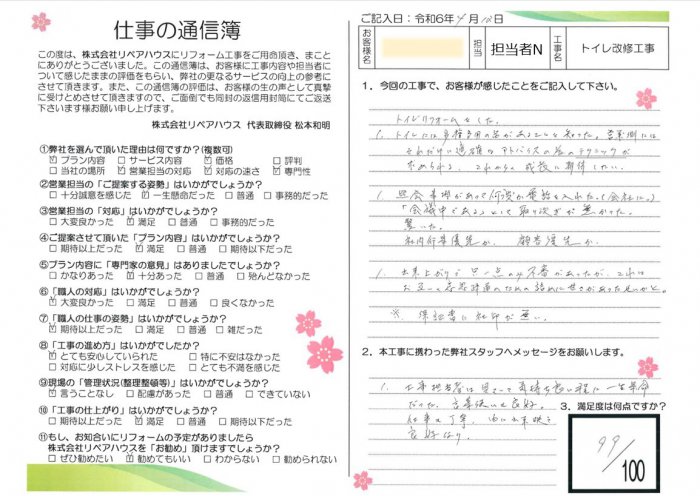 仕事の通信簿
この度は、株式会社リペアハウスにリフォーム工事をご用命頂き、まこと
にありがとうございました。この通信簿は、お客様に工事内容や担当者に
ついて感じたままの評価をもらい、弊社の更なるサービスの向上の参考に
させて頂きます。また、この通信簿の評価は、お客様の生の声として真摯
に受けとめさせて頂きますので、ご面倒でも同封の返信用封筒にてご返送
下さいます様お願い申し上げます。
株式会社リペアハウス 代表取締役 松本和明
①弊社を選んで頂いた理由は何ですか?(複数可)
☑プラン内容 □サービス内容 ☑価格 □評判
□当社の場所 ☑営業担当の対応 ☑対応の速さ ☑専門性
②営業担当の「ご提案する姿勢」はいかがでしょうか?
□十分誠意を感じた ☑一生懸命だった □普通 □事務的だった
③営業担当の「対応」はいかがでしょうか?
□大変良かった ☑満足 □普通 □事務的だった
④ご提案させて頂いた「プラン内容」はいかがでしょうか?
□期待以上だった ☑満足 □普通 □不満だった
⑤プラン内容に「専門家の意見」はありましたでしょうか?
□かなりあった ☑十分あった □普通 □殆んどなかった
⑥「職人の対応」はいかがでしょうか?
☑大変良かった □満足 □普通 □良くなかった
⑦「職人の仕事の姿勢」はいかがでしょうか?
☑期待以上だった □満足 □普通 □雑だった
⑧「工事の進め方」はいかがでしたか?
☑とても安心していられた □特に不安はなかった
□対応に少しストレスを感じた □とても不満を感じた
⑨現場の「管理状況(整理整頓等)」はいかがでしょうか?
☑言うことなし □配慮があった □普通 □できていない
⑩「工事の仕上がり」はいかがでしょうか?
□期待以上だった ☑満足 □普通 □不満だった
⑪もし、お知合いにリフォームの予定がありましたら
株式会社リペアハウスを「お勧め」頂けますでしょうか?
□ぜひ勧めたい ☑勧めてもいい □わからない □勧められない
ご記入日:令和6年 月 日
お客様名
担当
担当者N
工事名
トイレ改修工事
1.今回の工事で、お客様が感じたことをご記入して下さい。
トイレリフォームをした。
「会議中である」として取り次ぎが無かった。
驚いた。
社内行事優先か、顧客優先か
※ 保証書に社印が無い。
2.本工事に携わった弊社スタッフへメッセージをお願いします。
3.満足度は何点ですか?
99/100